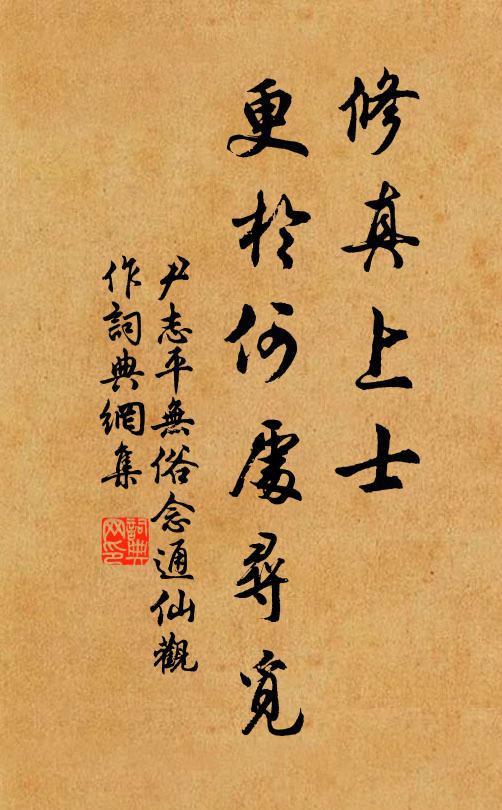 修真上士
更於何處尋覓
尹志平無俗念通仙觀
作詞典網集
詞典网印